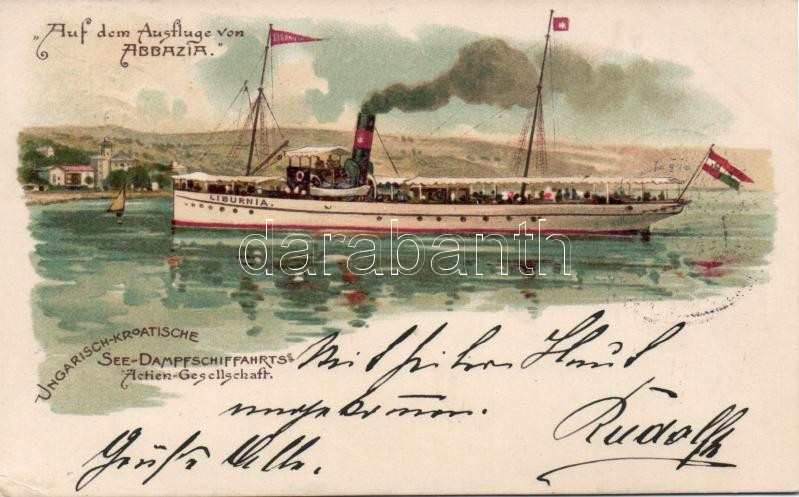 „Auf dem Ausfluge von
ABBAZIA."
LIBURNIA.
darabanth
UNGARISCH-KROATISCHE
SEE-DAMPFSCHIFFAHRTS-
Actien-Gesellschaft.
Mit Haut
angekommen.
Grüße Alle.
Rudolf